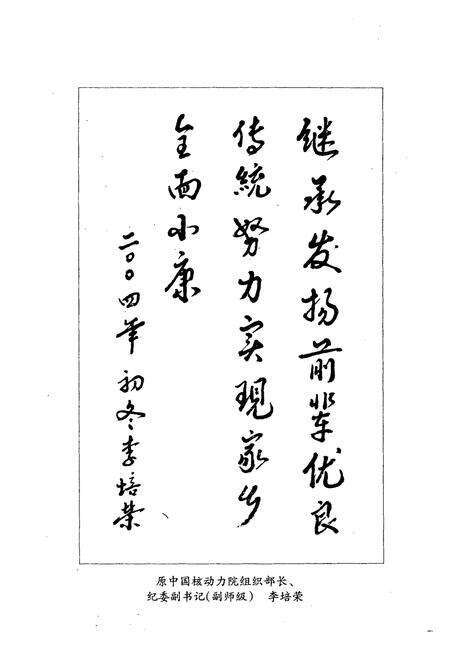 继承发扬前辈优良
传統努力实現家乡
全面小康
二〇〇四年初冬李培荣
原中国核动力院组织部长、
纪委副书记(副师级) 李培荣